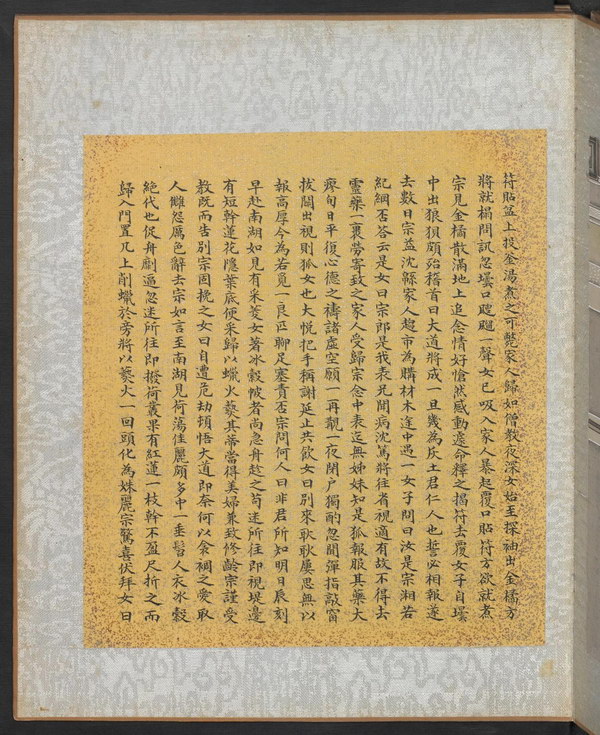 符貼盆上投釜湯煮之可斃家人歸如僧教夜深女始至探袖出金橘方
將就榻問訊忽壜口飕飕一聲女已吸入家人暴起覆口貼符方欲就煮
宗見金橘散滿地上追念情好愴然感動遽命釋之揭符去覆女子自壜
中出狼狽頗殆稽首曰大道將成一旦幾為灰土君仁人也誓必相報遂
去數日宗益沈緜家人趨市為購材木途中遇一女子問曰汝是宗湘若
紀綱否答云是女曰宗郎是我表兄聞病沈篤將往省視適有故不得去
靈藥一裹勞寄致之家人受歸宗念中表迄無姊妹知是狐報服其藥大
瘳旬日平復心德之禱諸虛空願一再覯一夜閉戶獨酌忽聞彈指敲窗
拔關出視則狐女也大悅把手稱謝延止共飲女曰別來耿耿屢思無以
報高厚今為若覓一良匹聊足塞責否宗問何人曰非君所知明日辰刻
早赴南湖如見有采菱女著冰縠帔者尚急舟趁之苟迷所往即視堤邊
有短幹蓮花隱葉底便采歸以蠟火爇其蒂當得美婦兼致修齡宗謹受
教既而告別宗固挽之女曰自遭危劫頓悟大道即奈何以衾裯之愛取
人雠怨厲色辭去宗如言至南湖見荷蕩佳麗頗多中一垂髫人衣冰縠
絕代也促舟劘逼忽迷所往即撥荷叢果有紅蓮一枝幹不盈尺折之而
歸入門置几上削蠟於旁將以爇火一回頭化為姝麗宗驚喜伏拜女曰